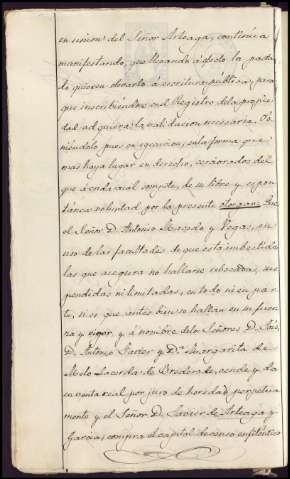 en union del Señor Arteaga, continúa
manifestando, que llevando á efecto lo pacta
do quieren elevarlo á escritura pública, para
que inscribiéndose en el Registro de la propie
dad adquiera la validacion necesaria. Po
niéndolo pues en egecucion, en la forma que
mas haya lugar en derecho, cerciorados del
que á cada cual compete, de su libre y espon
tánea voluntad por la presente otorgan: Que
el Señor D. Antonio y Vegas, en
uso de las facultades de que está embestido
las que asegura no hallarse sus
pendidas ni limitadas, en todo ni en par
te, si es que antes bien se hallan en su fuer
za y vigor, y á nombre de los Señores D. José,
D. Antonio Javier y D.ª Margarita de
Melo Lacerda de Brederode, vende y da
en venta real por juro de heredad perpetua
mente y el Señor D. Javier de Arteaga y
Garcia, compra el capital de censo enfiteutico